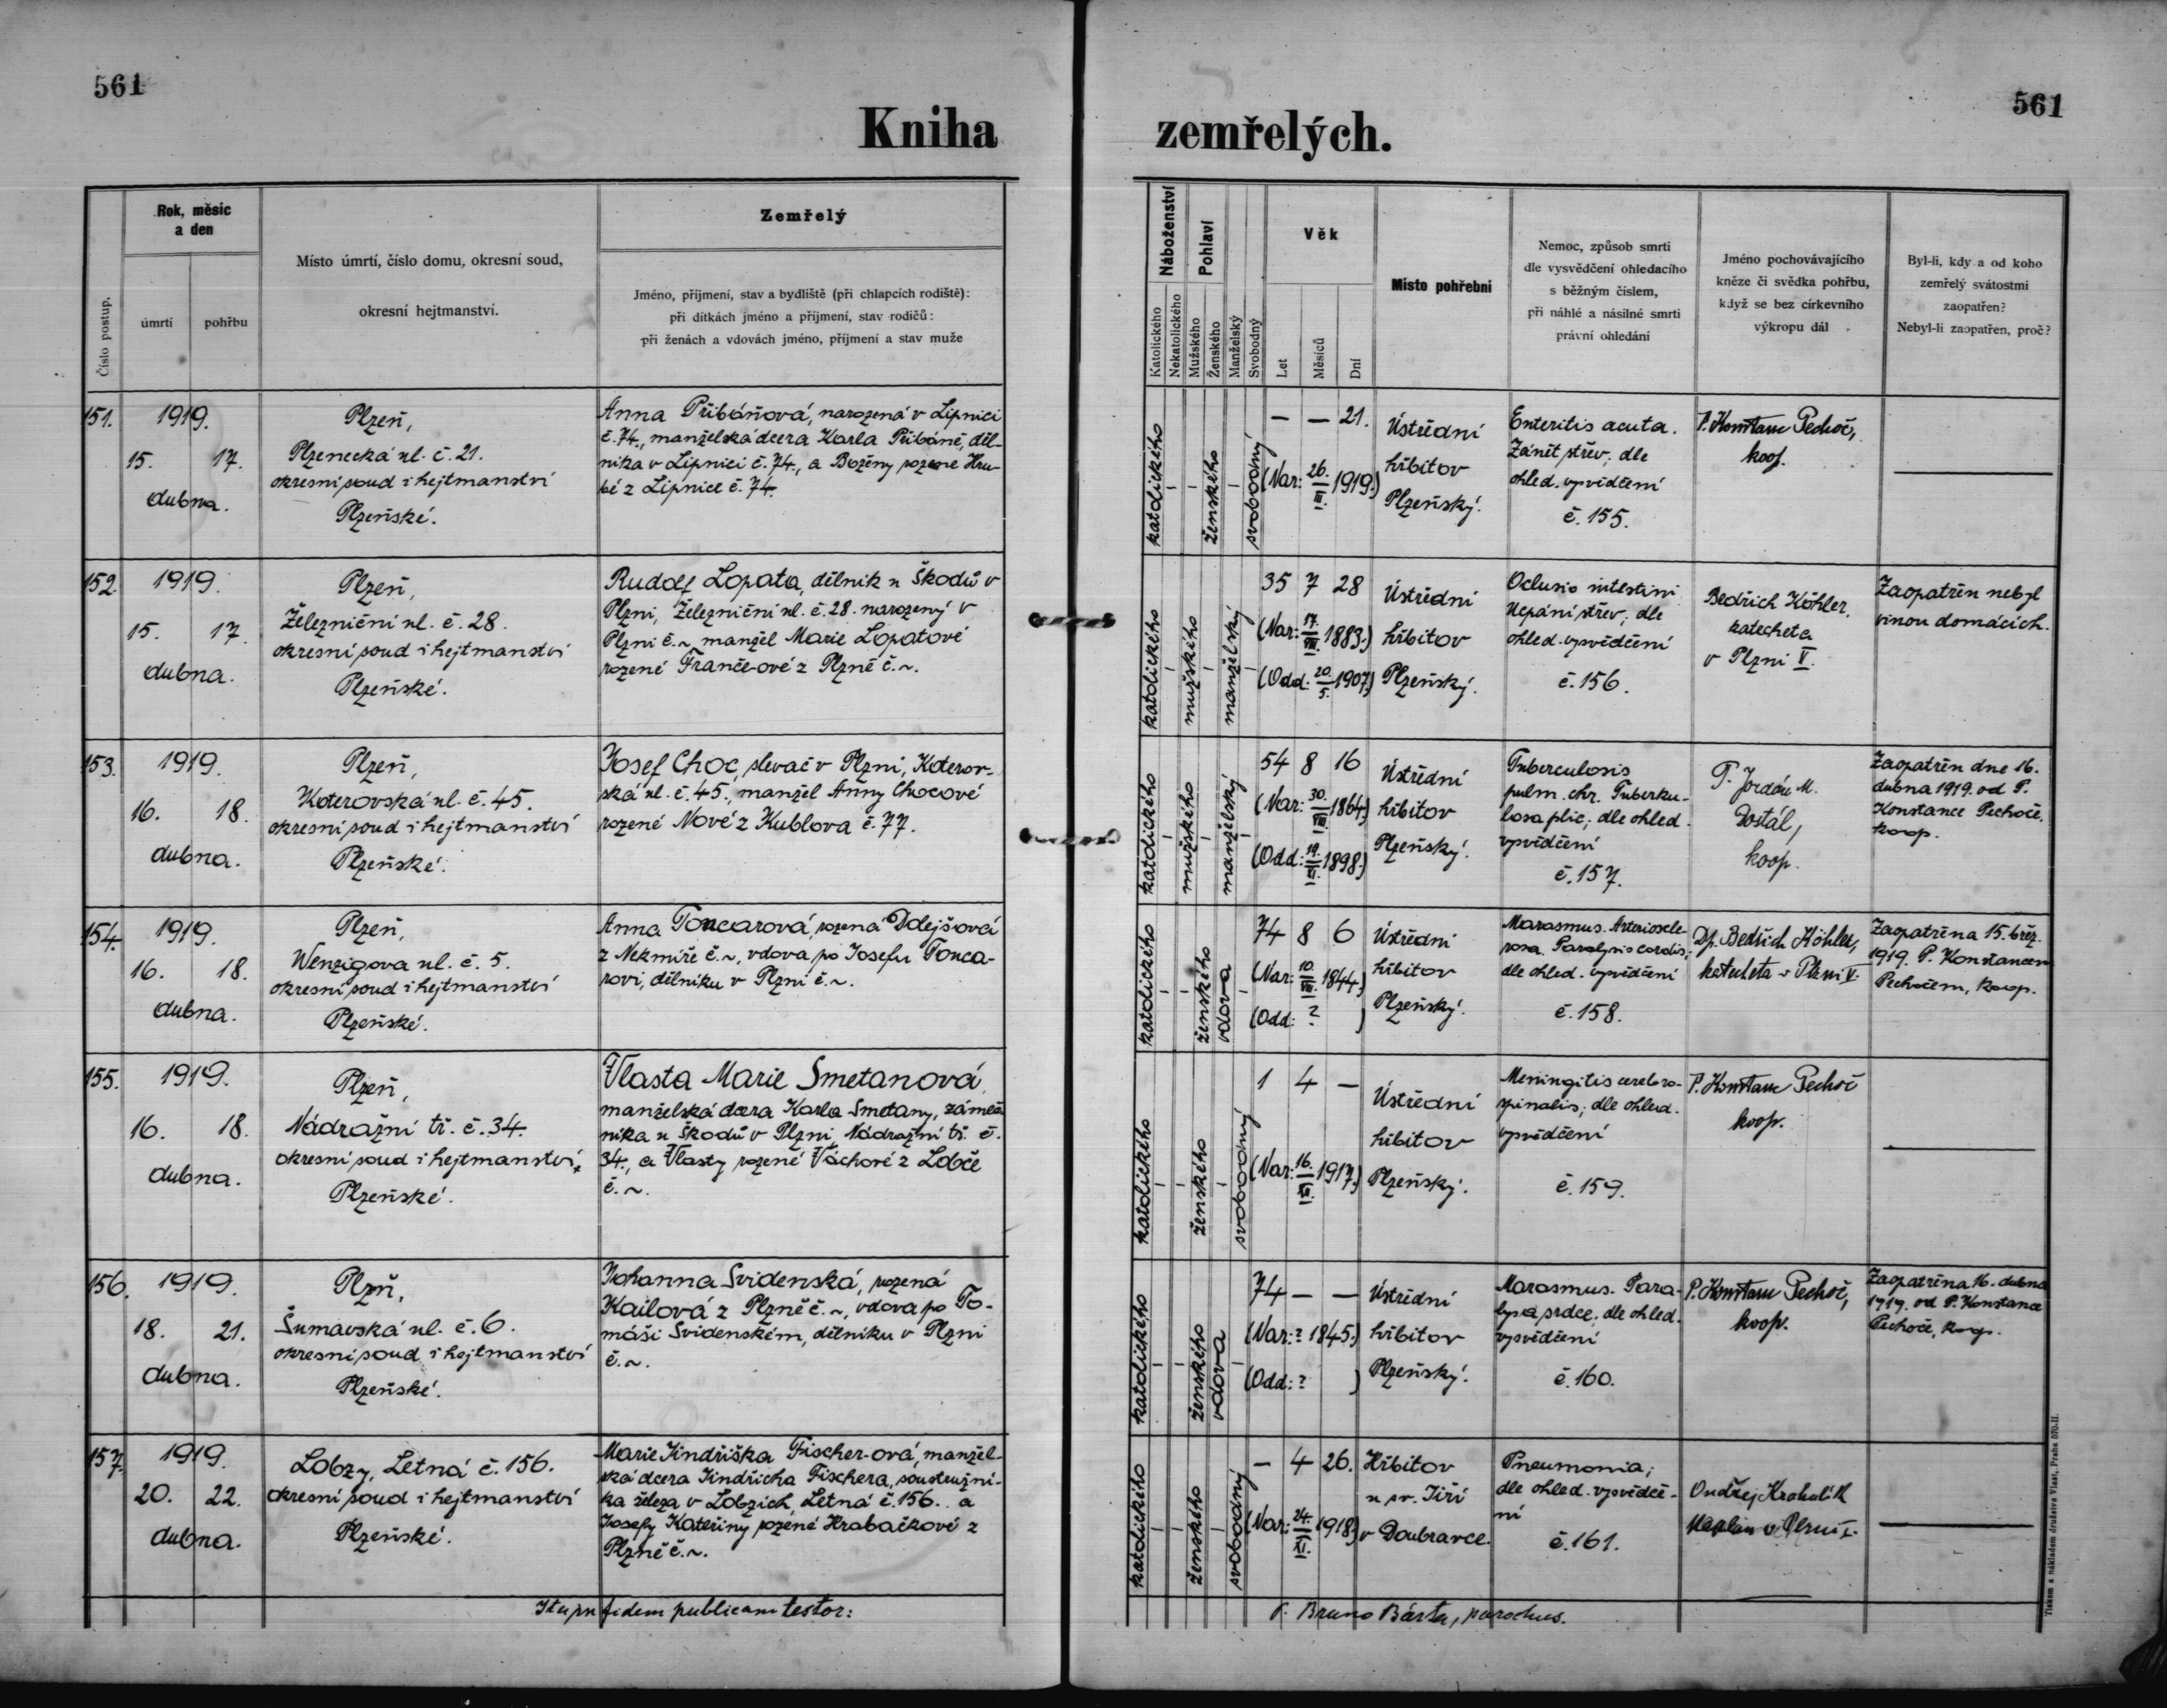 561
561
Kniha zemřelých.
Číslo postup.
Rok, měsíc
a den
úmrtí
pohřbu
Místo úmrtí, číslo domu, okresní soud,
okresní hejtmanství.
Zemřelý
Jméno, příjmení, stav a bydliště (při chlapcích rodiště):
při dítkách jméno a příjmení, stav rodičů:
při ženách a vdovách jméno, příjmení a stav muže
Náboženství
Katolického
Nekatolického
Pohlaví
Mužského
Ženského
Manželský
Svobodný
Věk
Let
Měsíců
Dní
Místo pohřební
Nemoc, způsob smrti
dle vysvědčení ohledacího
s běžným číslem,
při náhlé a násilné smrti
právní ohledání
Jméno pochovávajícího
kněze či svědka pohřbu,
když se bez církevního
výkropu dál
Byl-li, kdy a od koho
zemřelý svátostmi
zaopatřen?
Nebyl-li zaopatřen, proč?
151.
1919.
15. 17.
dubna.
Plzeň,
Plzenecká ul. č. 21.
okresní soud i hejtmanství
Plzeňské.
Anna Přibáňová, narozená v Lipnici
č. 74., manželská dcera Karla Přibáně, děl-
níka v Lipnici č. 74., a Boženy rozené Hru-
bé z Lipnice č. 74.
katolického
ženského
svobodný
— — 21.
(Nar: 26./III. 1919.)
Ústřední
hřbitov
Plzeňský.
Enteritis acuta.
Zánět střev; dle
ohled. vysvědčení
č. 155.
P. Konstanc Pechoč,
koop.
—
152.
1919.
15. 17.
dubna.
Plzeň,
Železniční ul. č. 28.
okresní soud i hejtmanství
Plzeňské.
Rudolf Lopata, dělník u Škodů v
Plzni, Železniční ul. č. 28. narozený v
Plzni č. ~ manžel Marie Lopatové
rozené Franče-ové z Plzně č. ~.
katolického
mužského
manželský
35 7 28
(Nar: 17./VIII. 1883.)
(Odd: 20./5. 1907.)
Ústřední
hřbitov
Plzeňský.
Oclusio intestini
Ucpání střev; dle
ohled. vysvědčení
č. 156.
Bedřich Köhler,
katecheta
v Plzni V.
Zaopatřen nebyl
vinou domácích.
153.
1919.
16. 18.
dubna.
Plzeň,
Koterovská ul. č. 45.
okresní soud i hejtmanství
Plzeňské.
Josef Choc, slevač v Plzni, Koterov-
ská ul. č. 45., manžel Anny Chocové
rozené Nové z Kublova č. 77.
katolického
mužského
manželský
54 8 16
(Nar: 30./VII. 1864.)
(Odd: 19./XI. 1898.)
Ústřední
hřbitov
Plzeňský.
Tuberculosis
pulm. chr. Tuberku-
losa plic; dle ohled.
vysvědčení
č. 157.
P. Jordán M.
Dostál,
koop.
Zaopatřen dne 16.
dubna 1919. od P.
Konstance Pechoče,
koop.
154.
1919.
16. 18.
dubna.
Plzeň,
Wenzigova ul. č. 5.
okresní soud i hejtmanství
Plzeňské.
Anna Toncarová, rozená Dolejšová
z Nekmíře č. ~, vdova po Josefu Tonca-
rovi, dělníku v Plzni č. ~.
katolického
ženského
vdova
74 8 6
(Nar: 10./VIII. 1844.)
(Odd: ? )
Ústřední
hřbitov
Plzeňský.
Marasmus. Arteriosele-
rosa. Paralysis cordis;
dle ohled. vysvědčení
č. 158.
Dp. Bedřich Köhler,
katecheta v Plzni V.
Zaopatřena 15. břez.
1919. P. Konstancem
Pechočem, koop.
155.
1919.
16. 18.
dubna.
Plzeň,
Nádražní tř. č. 34.
okresní soud i hejtmanství
Plzeňské.
Vlasta Marie Smetanová,
manželská dcera Karla Smetany, zámeč-
níka u Škodů v Plzni, Nádražní tř. č.
34., a Vlasty rozené Váchové z Lobče
č. ~.
katolického
ženského
svobodný
1 4 —
(Nar: 16./XII. 1917.)
Ústřední
hřbitov
Plzeňský.
Meningitis cerebro-
spinalis; dle ohled.
vysvědčení
č. 159.
P. Konstanc Pechoč
koop.
—
156.
1919.
18. 21.
dubna.
Plzň,
Šumavská ul. č. 6.
okresní soud i hejtmanství
Plzeňské.
Johanna Svidenská, rozená
Kailová z Plzně č. ~, vdova po To-
máši Svidenském, dělníku v Plzni
č. ~.
katolického
ženského
vdova
74 — —
(Nar: ? 1845.)
(Odd: ? )
Ústřední
hřbitov
Plzeňský.
Marasmus. Para-
lysa srdce; dle ohled.
vysvědčení
č. 160.
P. Konstanc Pechoč,
koop.
Zaopatřena 16. dubna
1919. od P. Konstance
Pechoče, koop.
157.
1919.
20. 22.
dubna.
Lobzy, Letná č. 156.
okresní soud i hejtmanství
Plzeňské.
Marie Jindřiška Fischer-ová, manžel-
ská dcera Jindřicha Fischera, soustružní-
ka železa v Lobzích Letná č. 156. a
Josefy Kateřiny rozené Hrabačkové z
Plzně č. ~.
katolického
ženského
svobodný
— 4 26.
(Nar: 24./XI. 1918.)
Hřbitov
u sv. Jiří
v Doubravce.
Pneumonia;
dle ohled. vysvědče-
ní
č. 161.
Ondřej Krahulík
kaplan v Plzni I.
—
Ita pu fidem publicam testor:
P. Bruno Bárta, parochus.
Tiskem a nákladem družstva Vlast, Praha 570-II.